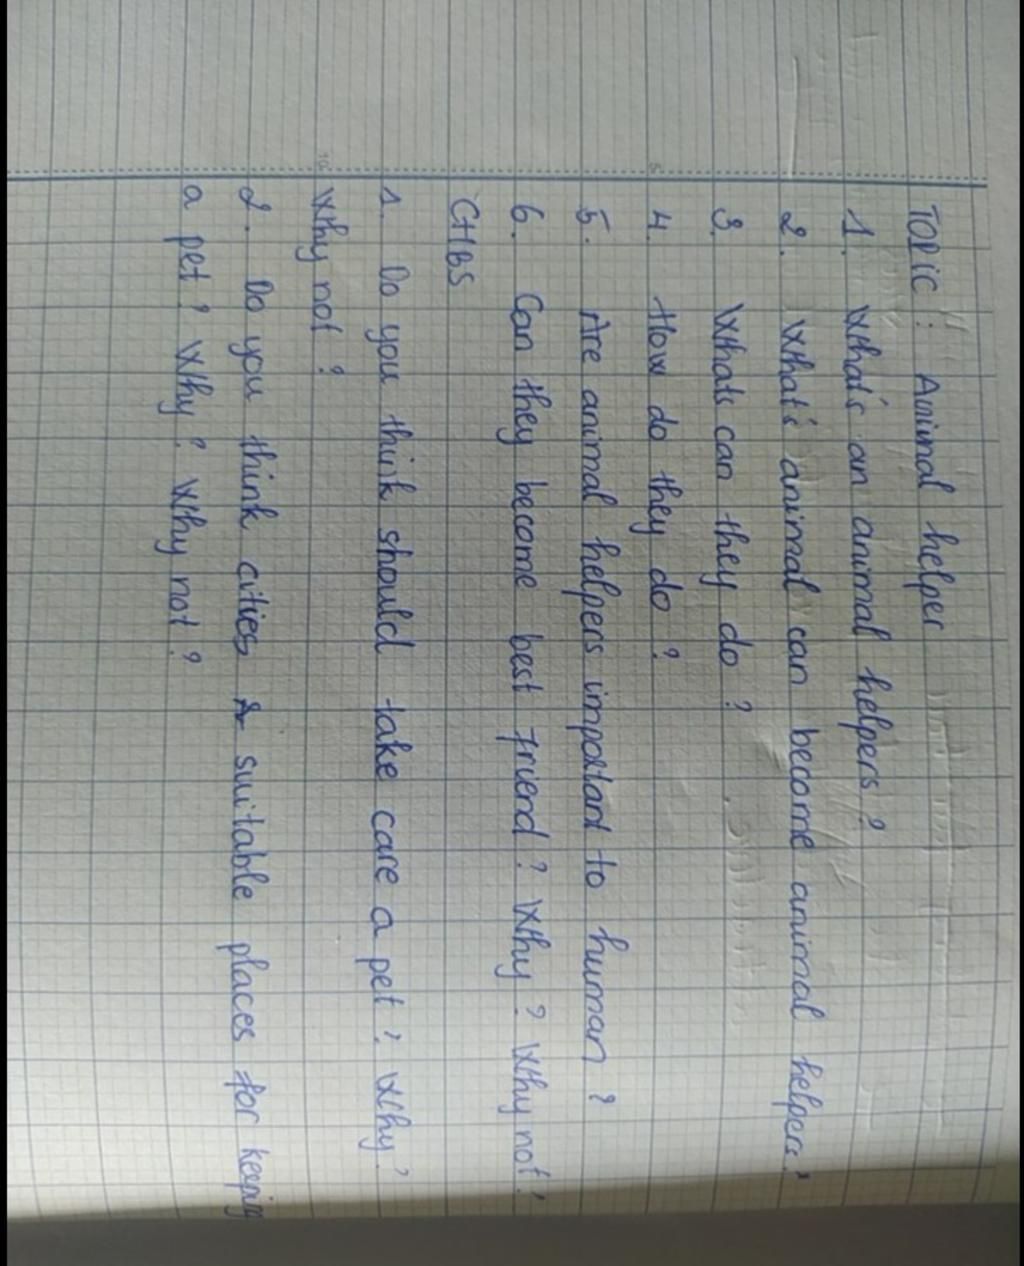 TOPIC : Animal helper
1. What's an animal helpers ?
2. What's animal can become animal helpers ?
3. Whats can they do ?
4. How do they do ?
5. Are animal helpers important to human ?
6. Can they become best friend ? Why ? Why not ?
CHBS
1. Do you think should take care a pet ? Why ?
Why not ?
2. Do you think cities & suitable places for keeping
a pet ? Why ? Why not ?